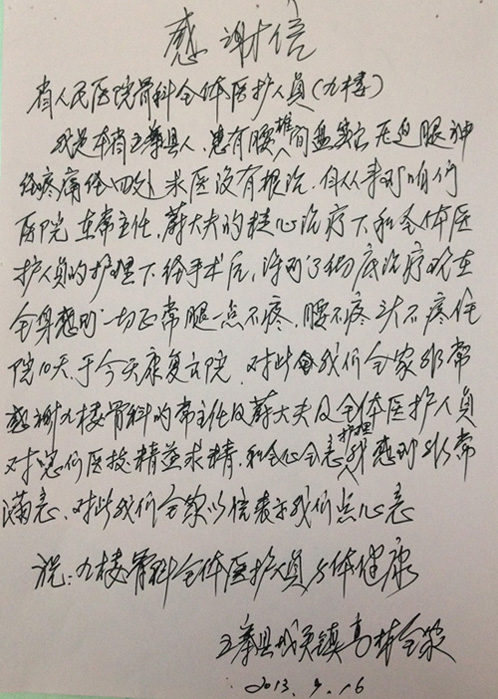 感谢信
省人民医院骨科全体医护人员(九楼)
我是本省五寨县人,患有腰椎间盘突出 压迫腿神
经疼痛经四处求医没有根治,自从来到咱们
医院 在常主任,蔚大夫的精心治疗下和全体医
护人员的护理下经手术后,得到了彻底治疗现在
全身感到一切正常腿一点不疼,腰不疼头不疼住
院10天,于今天康复出院,对此我们全家非常
感谢九楼骨科的常主任及蔚大夫及全体医护人员
对您们医技精益求精,和全心全意护理我感到非常
满意,对此我们全家以信表示我们点心意
祝:九楼骨科全体医护人员身体健康
五寨县城关镇高 全家
2013. 16